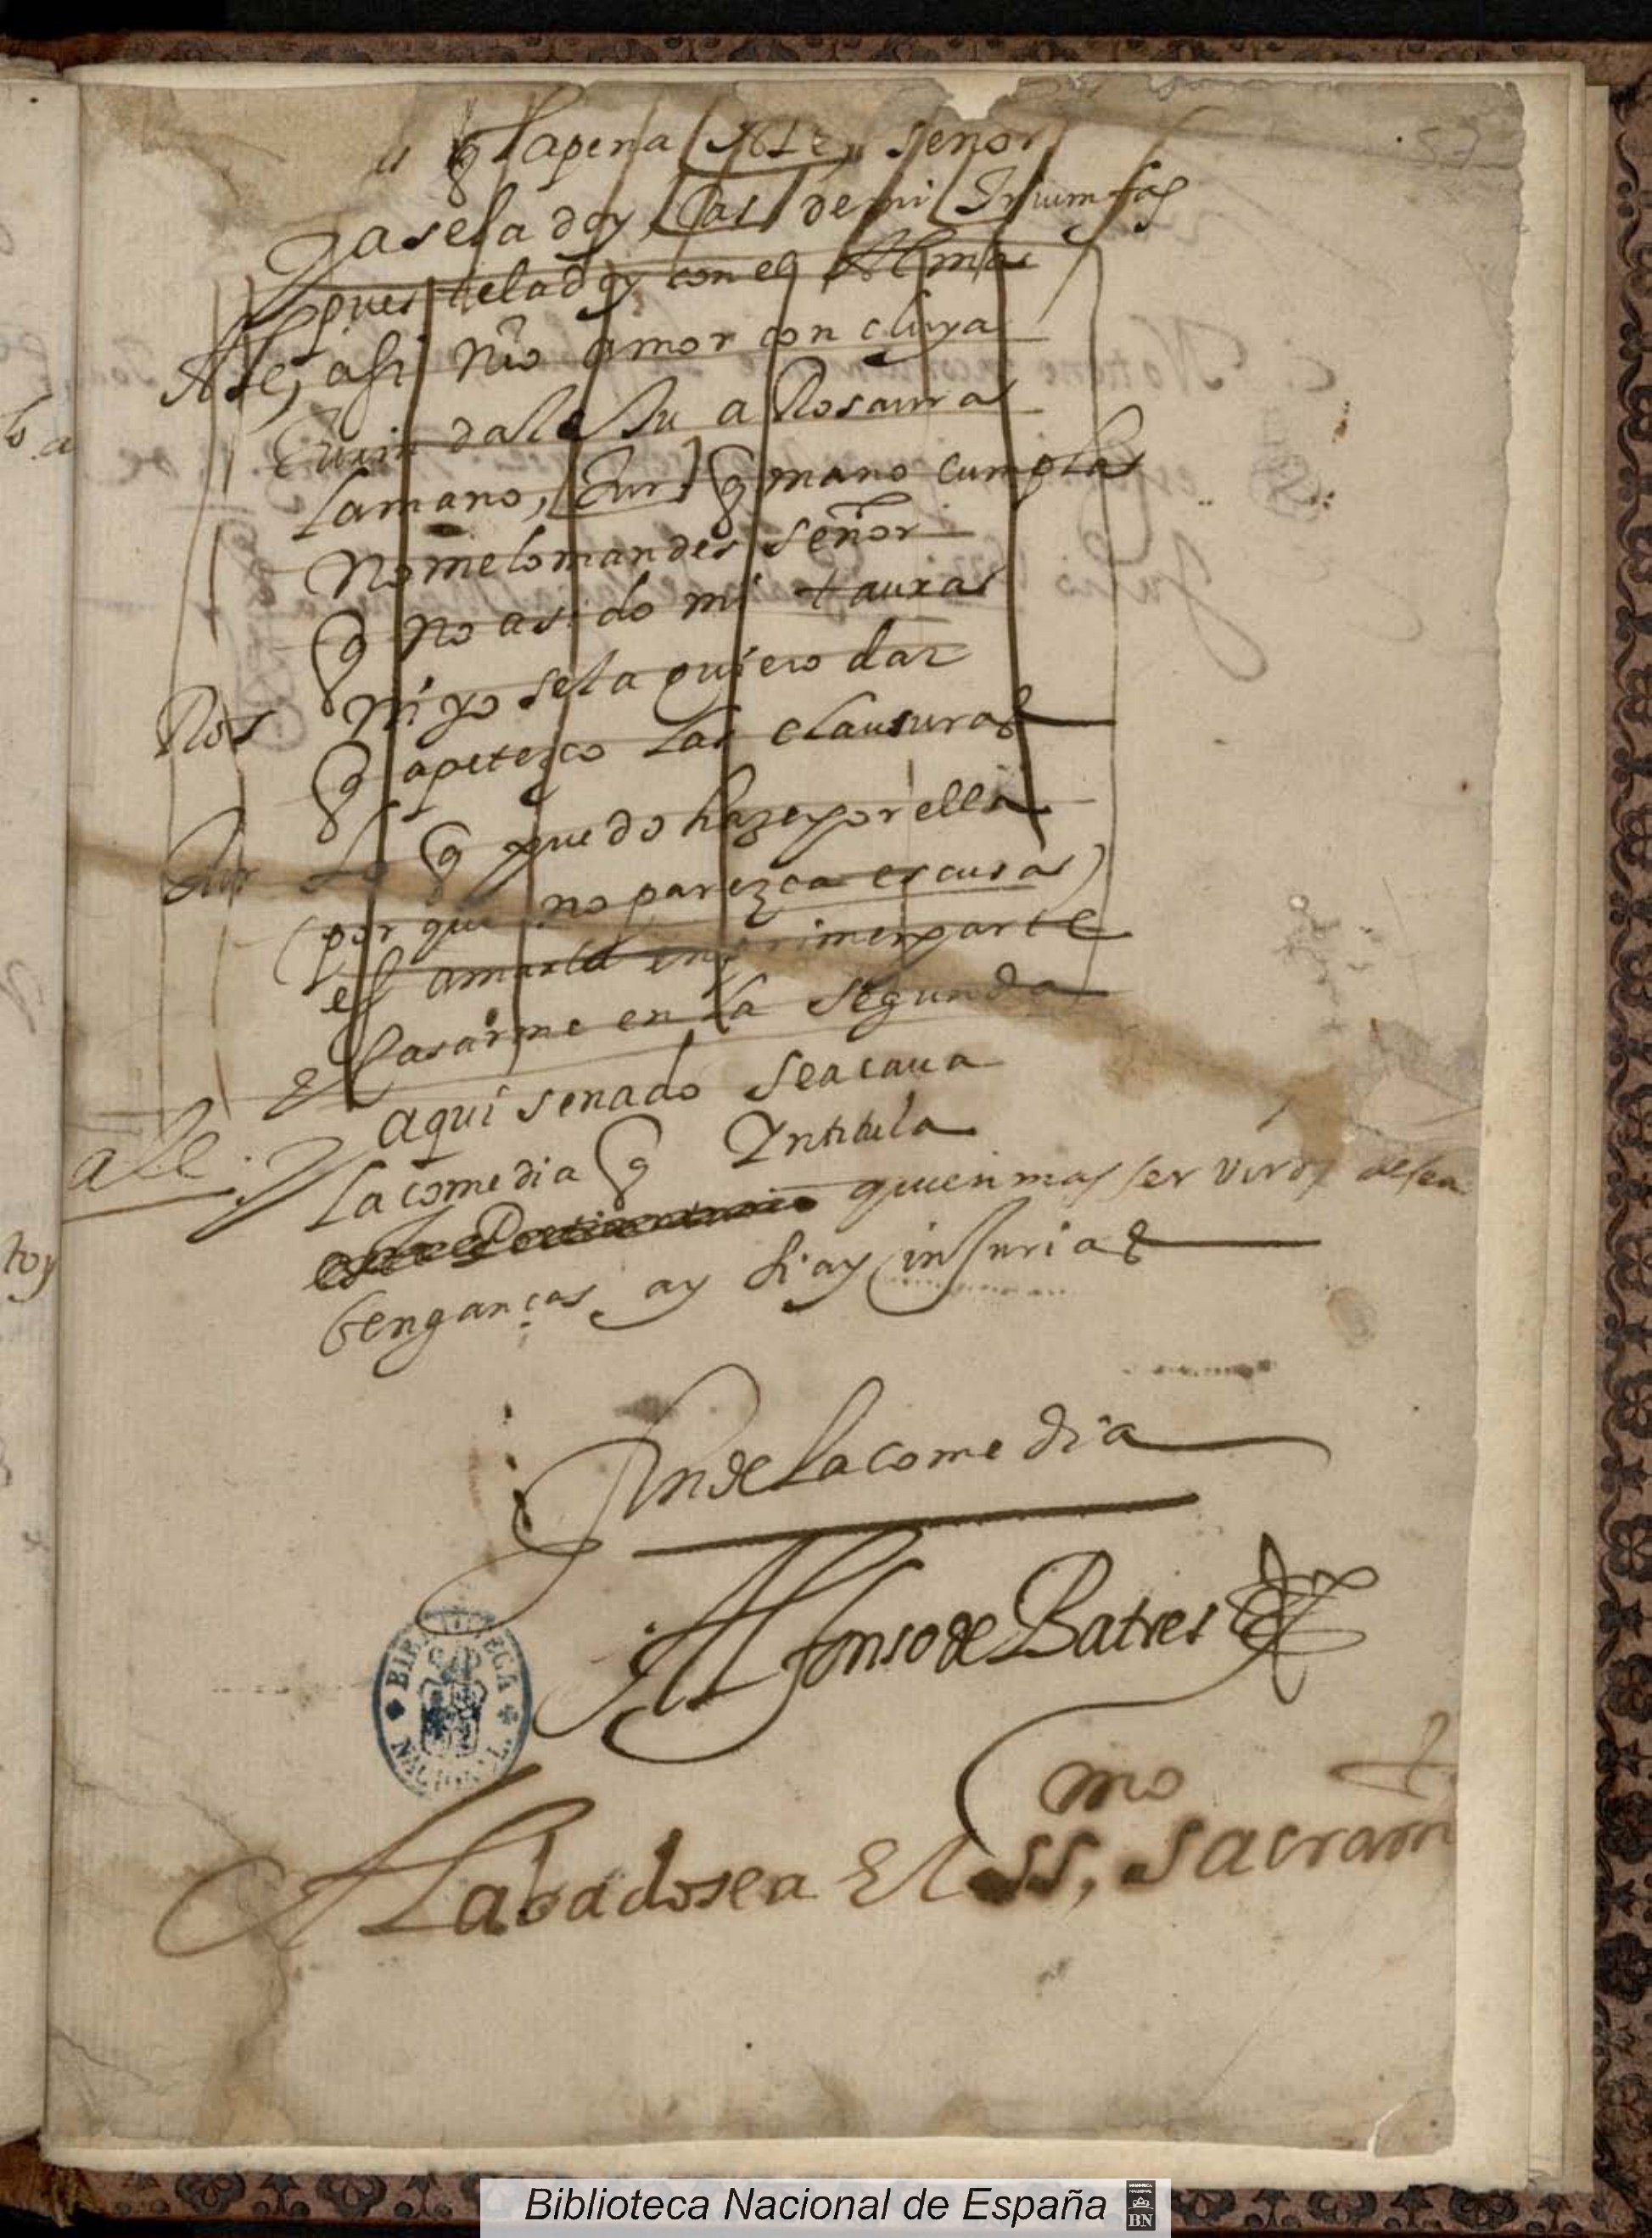 57
q la pena Ale, señor
ya se la doy, Cas de mi triumfas
pues te la doy con el Alma
Ale, assi nro amor concluya
dale tu a Rosaura
la mano, Tur q mano cumplas
No me lo mandes señor
q no a sido mi tauxas
Ros Ni yo se la quiero dar
q apetezco las clausuras
Tur Lo q puedo hazer por ella
(por que no parezca escusa)
es amarla en primer parte
y casarme en la segunda
ale. aqui senado se acaua
la comedia q Intitula
quien mas serviros desea
bengancas ay si ay injurias
Fin de la comedia
Alfonso de Batres
mo
Alabado sea El SS, sacram
BIBLIOTECA NACIONAL
Biblioteca Nacional de España
BN